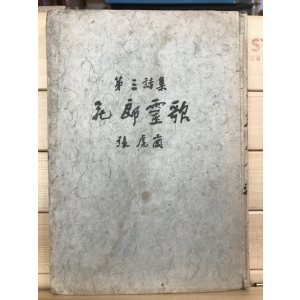 第三詩集
花郎靈歌
張虎岡
ST